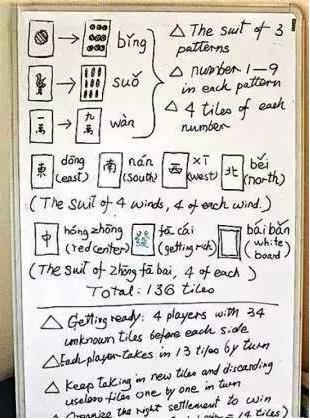 bǐng
△ The suit of 3 patterns
一萬 → 九萬 suǒ
△ number 1-9 in each pattern
wàn
△ 4 tiles of each number
東 dōng (east) 南 nán (south) 西 xī (west) 北 běi (north)
(The suit of 4 winds, 4 of each wind.)
中 hóng zhōng (red center) fā cái (getting rich) bái bǎn (white board)
(The suit of zhōng fā bai, 4 of each)
Total: 136 tiles
△ Getting ready: 4 players with 34
unknown tiles before each side
△ Each player takes in 13 tiles by turn
△ Keep taking in new tiles and discarding
useless tiles one by one in turn
△ Organize the right settlement to win
14 tiles)